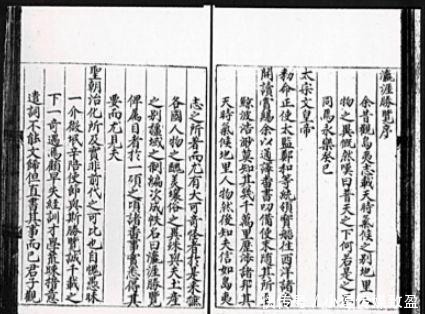 瀛涯勝覽序
余昔觀島夷志載天時氣候之別地里
物之異慨然嘆曰普天之下何若是之
同焉永樂癸巳
太宗文皇帝
勑命正使太監鄭和等統領寶船往西洋諸
開讀賞賜余以通譯番書忝備使末隨其所
鯨波浩渺莫知其幾千萬里歷涉諸邦其
天時氣候地里人物然後知夫信如島夷
志之所著而尤有大可奇怪者焉於是采摭
各國人物之醜美壤俗之異殊與夫土產
之別疆域之制編次成帙名曰瀛涯勝覽
俾屬目者於一頃之頃諸番事實悉得其
要而尤見夫
聖朝治化所及實非前代之可比也自愧愚昧
一介微氓辛陪使節與斯勝覽誠千載之
下一奇遇焉顧失經訓才學荒疎措意
遣詞不能文飾但直書其事而已君子觀
收盈